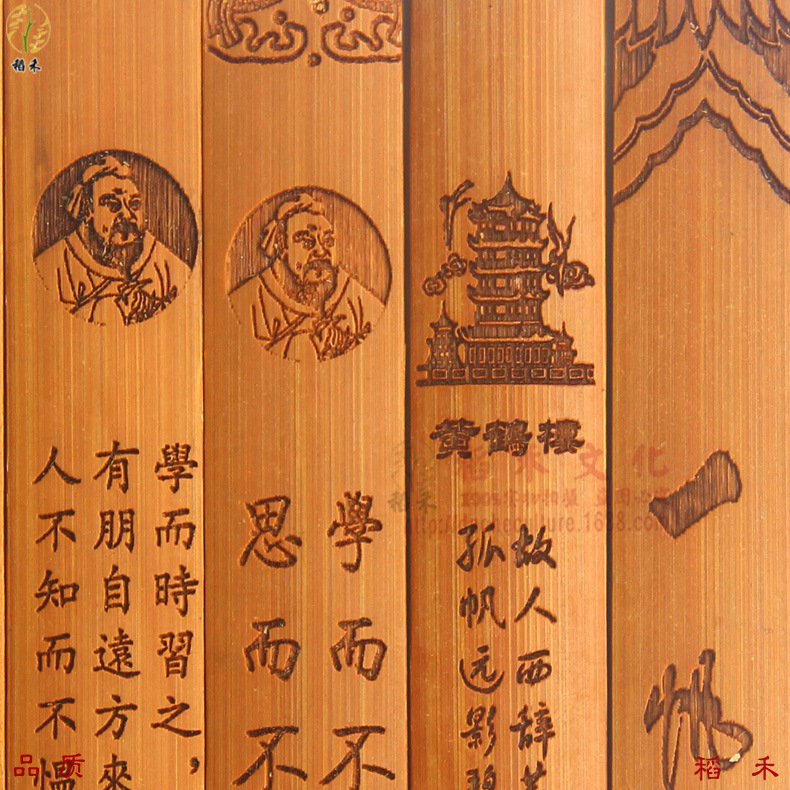 稻禾
學而時習之，
有朋自遠方來
人不知而不慍
學而不
思而不
黄鶴樓
故人西辞黄
孤帆远影碧
一帆
稻禾文化
品质
稻禾